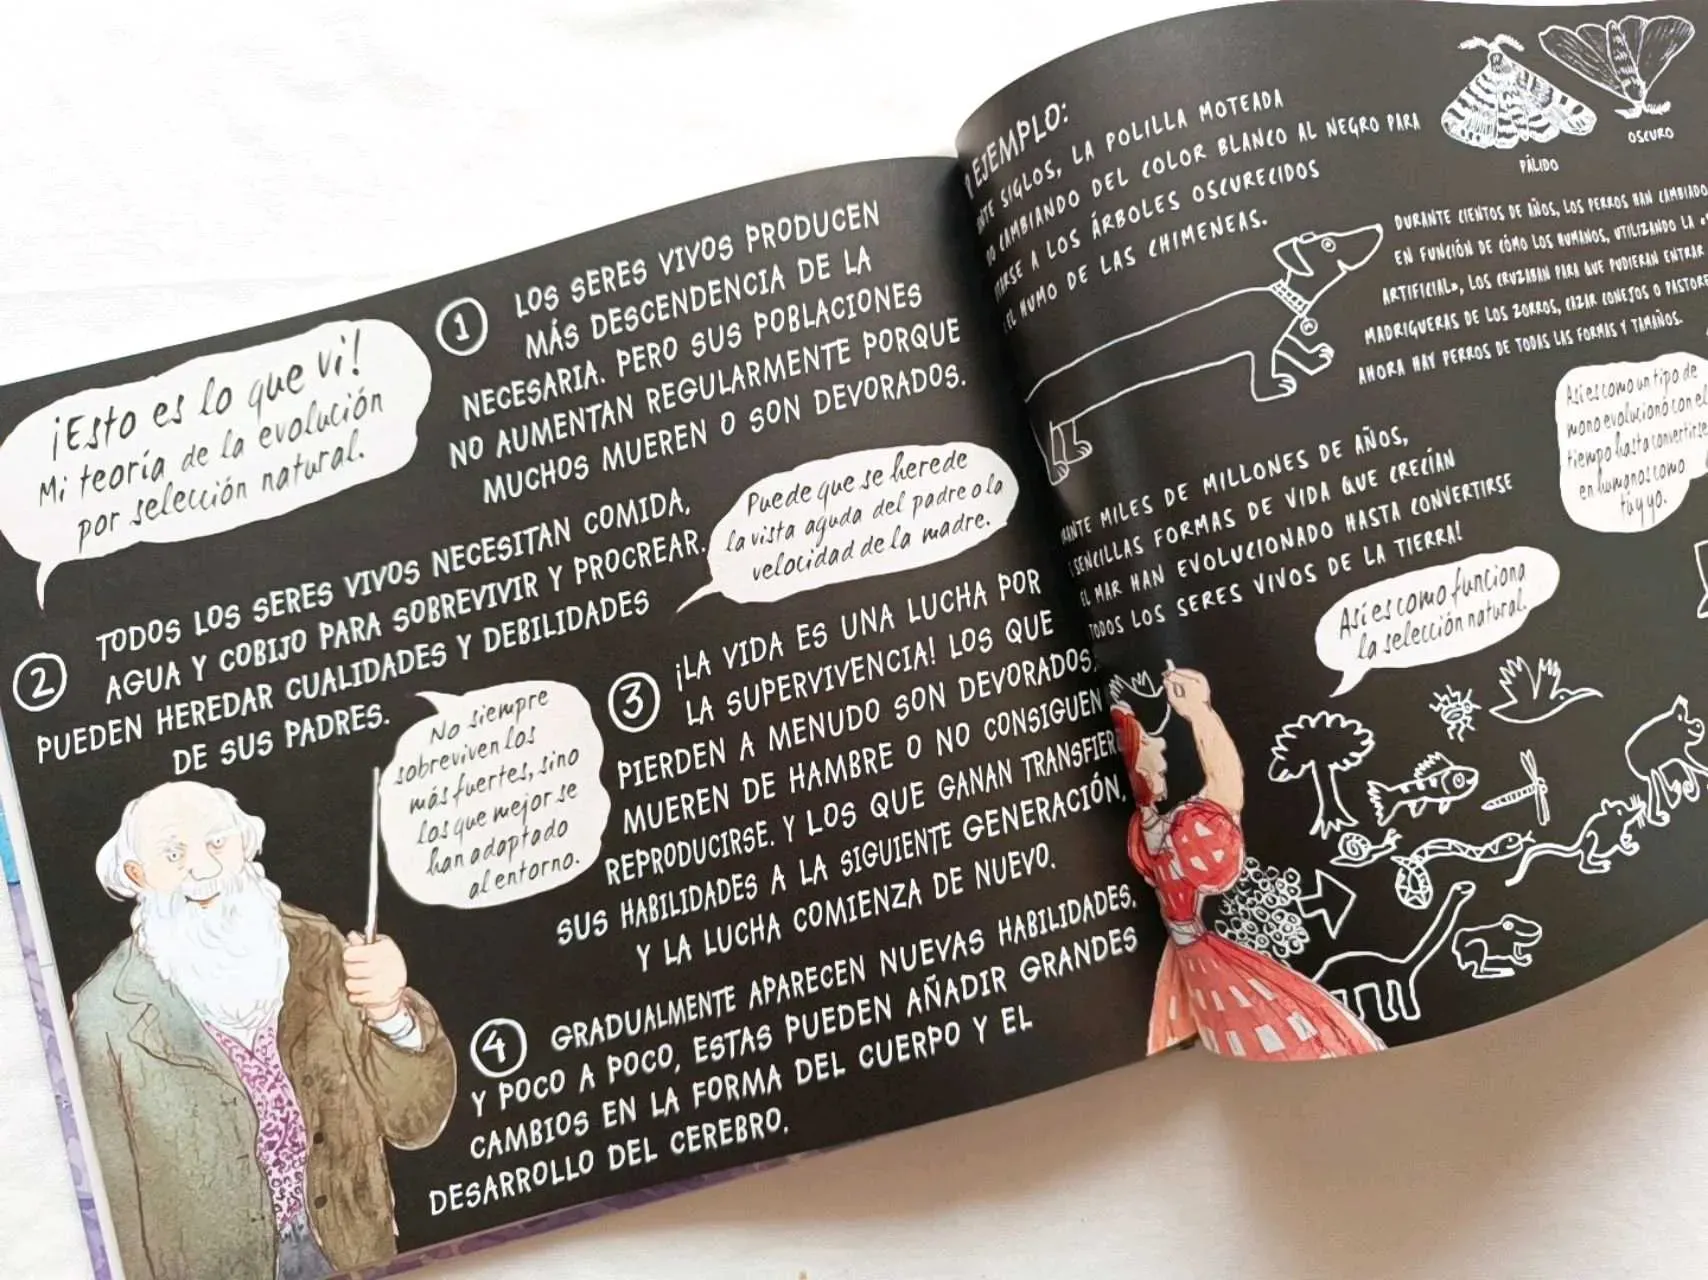 ¡Esto es lo que vi!
Mi teoría de la evolución
por selección natural.
1
LOS SERES VIVOS PRODUCEN
MÁS DESCENDENCIA DE LA
NECESARIA. PERO SUS POBLACIONES
NO AUMENTAN REGULARMENTE PORQUE
MUCHOS MUEREN O SON DEVORADOS.
2
TODOS LOS SERES VIVOS NECESITAN COMIDA,
AGUA Y COBIJO PARA SOBREVIVIR Y PROCREAR.
PUEDEN HEREDAR CUALIDADES Y DEBILIDADES
DE SUS PADRES.
Puede que se herede
la vista aguda del padre o la
velocidad de la madre.
No siempre
sobreviven los
más fuertes, sino
los que mejor se
han adaptado
al entorno.
3
¡LA VIDA ES UNA LUCHA POR
LA SUPERVIVENCIA! LOS QUE
PIERDEN A MENUDO SON DEVORADOS,
MUEREN DE HAMBRE O NO CONSIGUEN
REPRODUCIRSE. Y LOS QUE GANAN TRANSFIER
SUS HABILIDADES A LA SIGUIENTE GENERACIÓN,
Y LA LUCHA COMIENZA DE NUEVO.
4
GRADUALMENTE APARECEN NUEVAS HABILIDADES,
Y POCO A POCO, ESTAS PUEDEN AÑADIR GRANDES
CAMBIOS EN LA FORMA DEL CUERPO Y EL
DESARROLLO DEL CEREBRO.
EJEMPLO:
SIGLOS, LA POLILLA MOTEADA
CAMBIANDO DEL COLOR BLANCO AL NEGRO PARA
A LOS ÁRBOLES OSCURECIDOS
EL HUMO DE LAS CHIMENEAS.
PÁLIDO
OSCURO
DURANTE CIENTOS DE AÑOS, LOS PERROS HAN CAMBIADO
EN FUNCIÓN DE CÓMO LOS HUMANOS, UTILIZANDO LA
ARTIFICIAL», LOS CRUZABAN PARA QUE PUDIERAN ENTRAR
MADRIGUERAS DE LOS ZORROS, CAZAR CONEJOS O PASTORE
AHORA HAY PERROS DE TODAS LAS FORMAS Y TAMAÑOS.
Así es como un tipo de
mono evolucionó con el
tiempo hasta convertirse
en humanos como
tú y yo.
MILES DE MILLONES DE AÑOS,
SENCILLAS FORMAS DE VIDA QUE CRECÍAN
EL MAR HAN EVOLUCIONADO HASTA CONVERTIRSE
TODOS LOS SERES VIVOS DE LA TIERRA!
Así es como funciona
la selección natural.